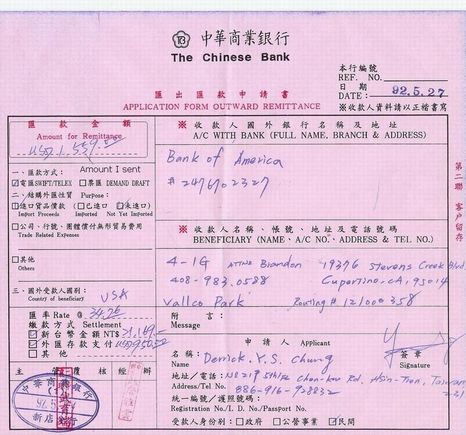 中華商業銀行
The Chinese Bank
本行編號
REF. NO.
匯出匯款申請書
日期
DATE: 92.5.27
APPLICATION FORM OUTWARD REMITTANCE
※收款人資料請以正楷書寫
匯款金額
Amount for Remittance
Amount I sent
一、匯款方式:
☑電匯SWIFT/TELEX □票匯 DEMAND DRAFT
二、結購外匯性質 Purpose:
□進口貨品價款(□已進口 □未進口)
Import Proceeds Imported Not Yet Imported
□公司、行號、團體償付無形貿易費用
Trade Related Expenses
□其他
Others
三、國外受款人國別:
Country of beneficiary
USA
匯率 Rate @ 34.76
繳款方式 Settlement
新台幣金額 NT$
外匯存款支付
□其他
主管 覆核 經辦
中華商業銀行
新店分行
※收款人國外銀行名稱及地址
A/C WITH BANK (FULL NAME, BRANCH & ADDRESS)
Bank of America
# 2476702327
※收款人名稱、帳號、地址及電話號碼
BENEFICIARY (NAME、A/C NO.、ADDRESS & TEL NO.)
4-1G ATTN: Brandon 19376 Stevens Creek Blvd
408-983.0588 Cupertino, CA, 95014
Vallco Park Routing # 121000358
附言:
Message
申請人 Applicant
名稱: Derrick. Y.S. Chung
Name:
簽章
Signature
地址/電話:
Address/Tel No. 886-916-928832
統一編號/護照號碼:
Registration No./I. D. No./Passport No.
受款人身份別:□政府 □公營事業 ☑民間
第二聯 客戶留存